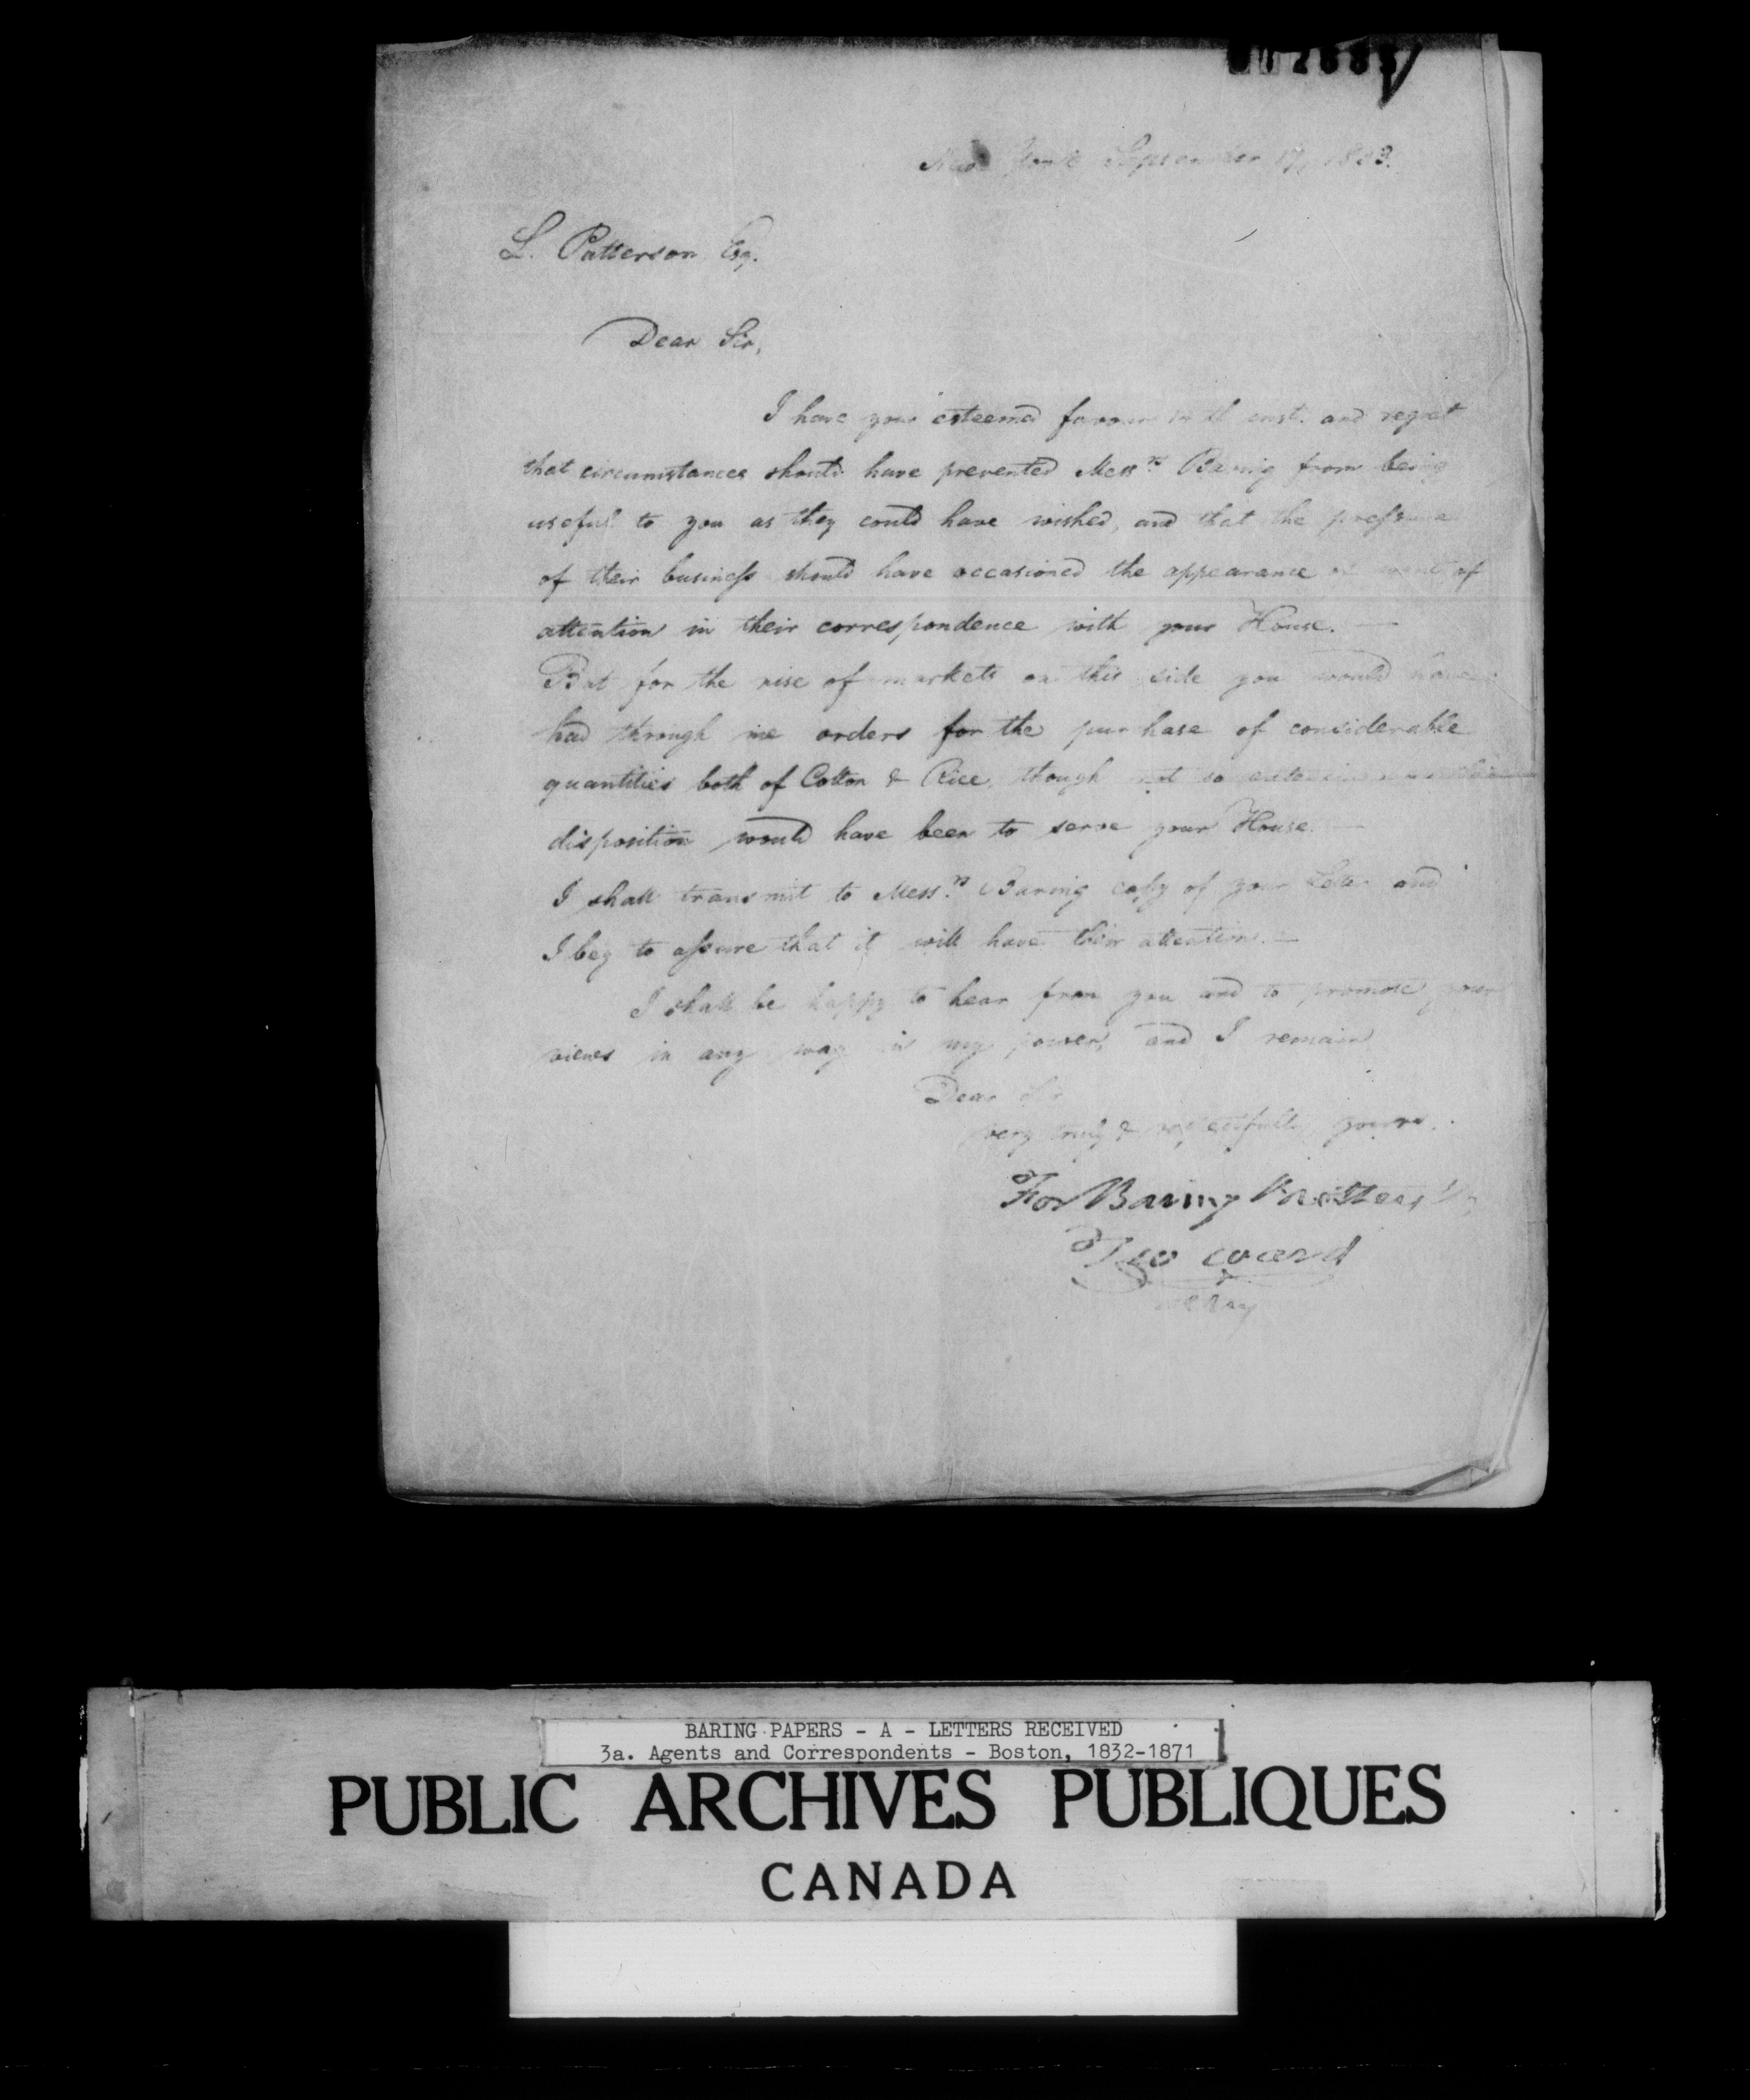 New York September 17, 1833.
L. Patterson Esq.
Dear Sir,
I have your esteemed favour inst. and regret
that circumstances should have prevented Messrs. Baring from being
useful to you as they could have wished, and that the pressure
of their business should have occasioned the appearance of want of
attention in their correspondence with your House. —
But for the rise of markets on this side you would have
had through me orders for the purchase of considerable
quantities both of Cotton & Rice, though not so
disposition would have been to serve your House. —
I shall transmit to Messrs. Baring copy of your Letter and
I beg to assure that it will have their attention. —
I shall be happy to hear from you and to promote your
views in any way in my power, and I remain
Dear Sir
very truly & respectfully yours.
For Baring Brothers
BARING PAPERS - A - LETTERS RECEIVED
3a. Agents and Correspondents - Boston, 1832-1871
PUBLIC ARCHIVES PUBLIQUES
CANADA